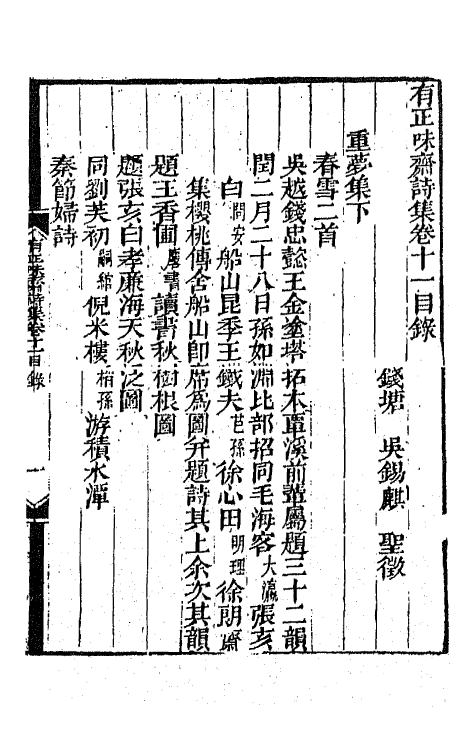 有正味齋詩集卷十一目錄
錢塘 吳錫麒 聖徵
重夢集下
春雪二首
吳越錢忠懿王金塗塔拓本覃溪前輩屬題三十二韻
閏二月二十八日孫如淵比部招同毛海客大瀛張亥
白問安船山昆季王鐵夫芑孫徐心田明理徐朗齋
集櫻桃傳舍船山卽席爲圖弁題詩其上余次其韻
題王香圃慶書讀書秋樹根圖
題張亥白孝廉海天秋泛圖
同劉芙初嗣綰倪米樓稻孫游積水潭
秦節婦詩
有正味齋詩集卷十一目錄 一